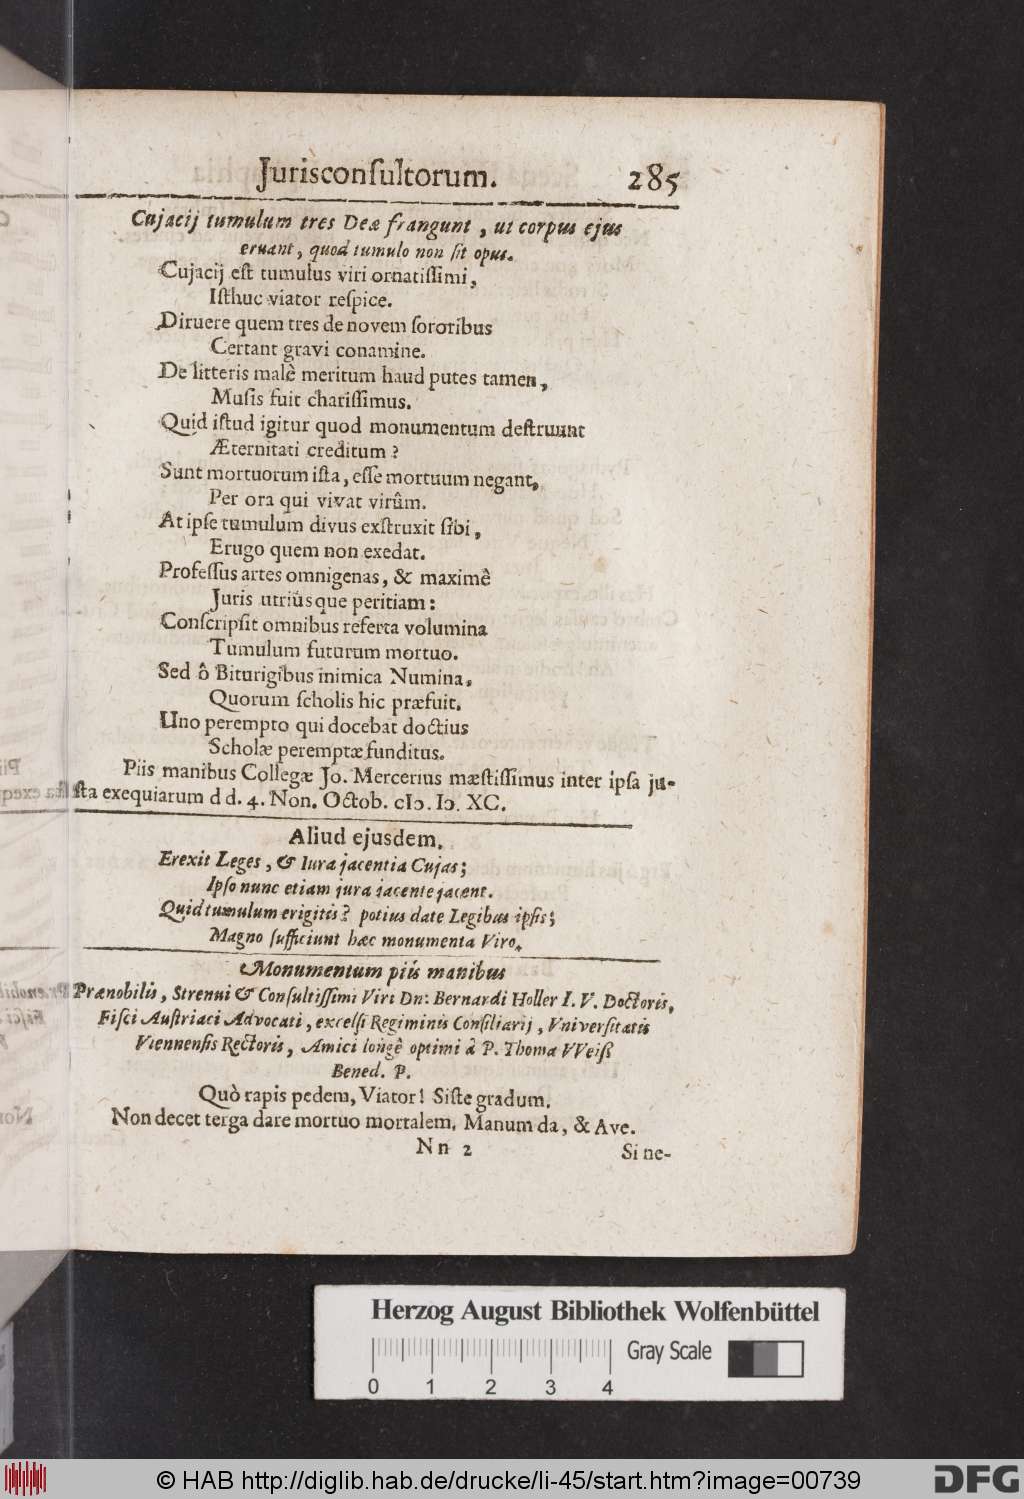 Jurisconſultorum. 285
Cujacij tumulum tres Deæ frangunt, ut corpus ejus
eruant, quod tumulo non ſit opus.
Cujacij eſt tumulus viri ornatiſſimi,
Iſthuc viator reſpice.
Diruere quem tres de novem ſororibus
Certant gravi conamine.
De litteris malè meritum haud putes tamen,
Muſis fuit chariſſimus.
Quid iſtud igitur quod monumentum deſtruunt
Æternitati creditum?
Sunt mortuorum iſta, eſſe mortuum negant,
Per ora qui vivat virûm.
At ipſe tumulum divus exſtruxit ſibi,
Erugo quem non exedat.
Profeſſus artes omnigenas, & maximè
Juris utriúsque peritiam:
Conſcripſit omnibus referta volumina
Tumulum futurum mortuo.
Sed ô Biturigibus inimica Numina,
Quorum ſcholis hic præfuit.
Uno perempto qui docebat doctius
Scholæ peremptæ funditus.
Piis manibus Collegæ Jo. Mercerius mæſtiſſimus inter ipſa ju-
ſta exequiarum d d. 4. Non. Octob. cIↄ. Iↄ. XC.
Aliud ejusdem.
Erexit Leges, & Iura jacentia Cujas;
Ipſo nunc etiam jura jacente jacent.
Quid tumulum erigitis? potius date Legibus ipſis;
Magno ſufficiunt hæc monumenta Viro.
Monumentum piis manibus
Prænobilis, Strenui & Conſultiſſimi Viri Dn: Bernardi Holler I. V. Doctoris,
Fiſci Auſtriaci Advocati, excelſi Regiminis Conſiliarij, Vniverſitatis
Viennenſis Rectoris, Amici longè optimi à P. Thoma VVeiß
Bened. P.
Quò rapis pedem, Viator! Siſte gradum.
Non decet terga dare mortuo mortalem. Manum da, & Ave.
Nn 2 Si ne-
Herzog August Bibliothek Wolfenbüttel
Gray Scale
0 1 2 3 4
© HAB http://diglib.hab.de/drucke/li-45/start.htm?image=00739
DFG